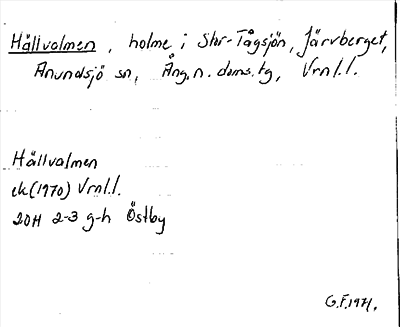 Hällvalmen, holme i Stor-Tågsjön, Järvberget,
Anundsjö sn, Ång. n. doms. tg, Vrnl.l.
Hällvalmen
ek (1970) Vrnl.l.
20H 2-3 g-h Östby
G.F. 1971.